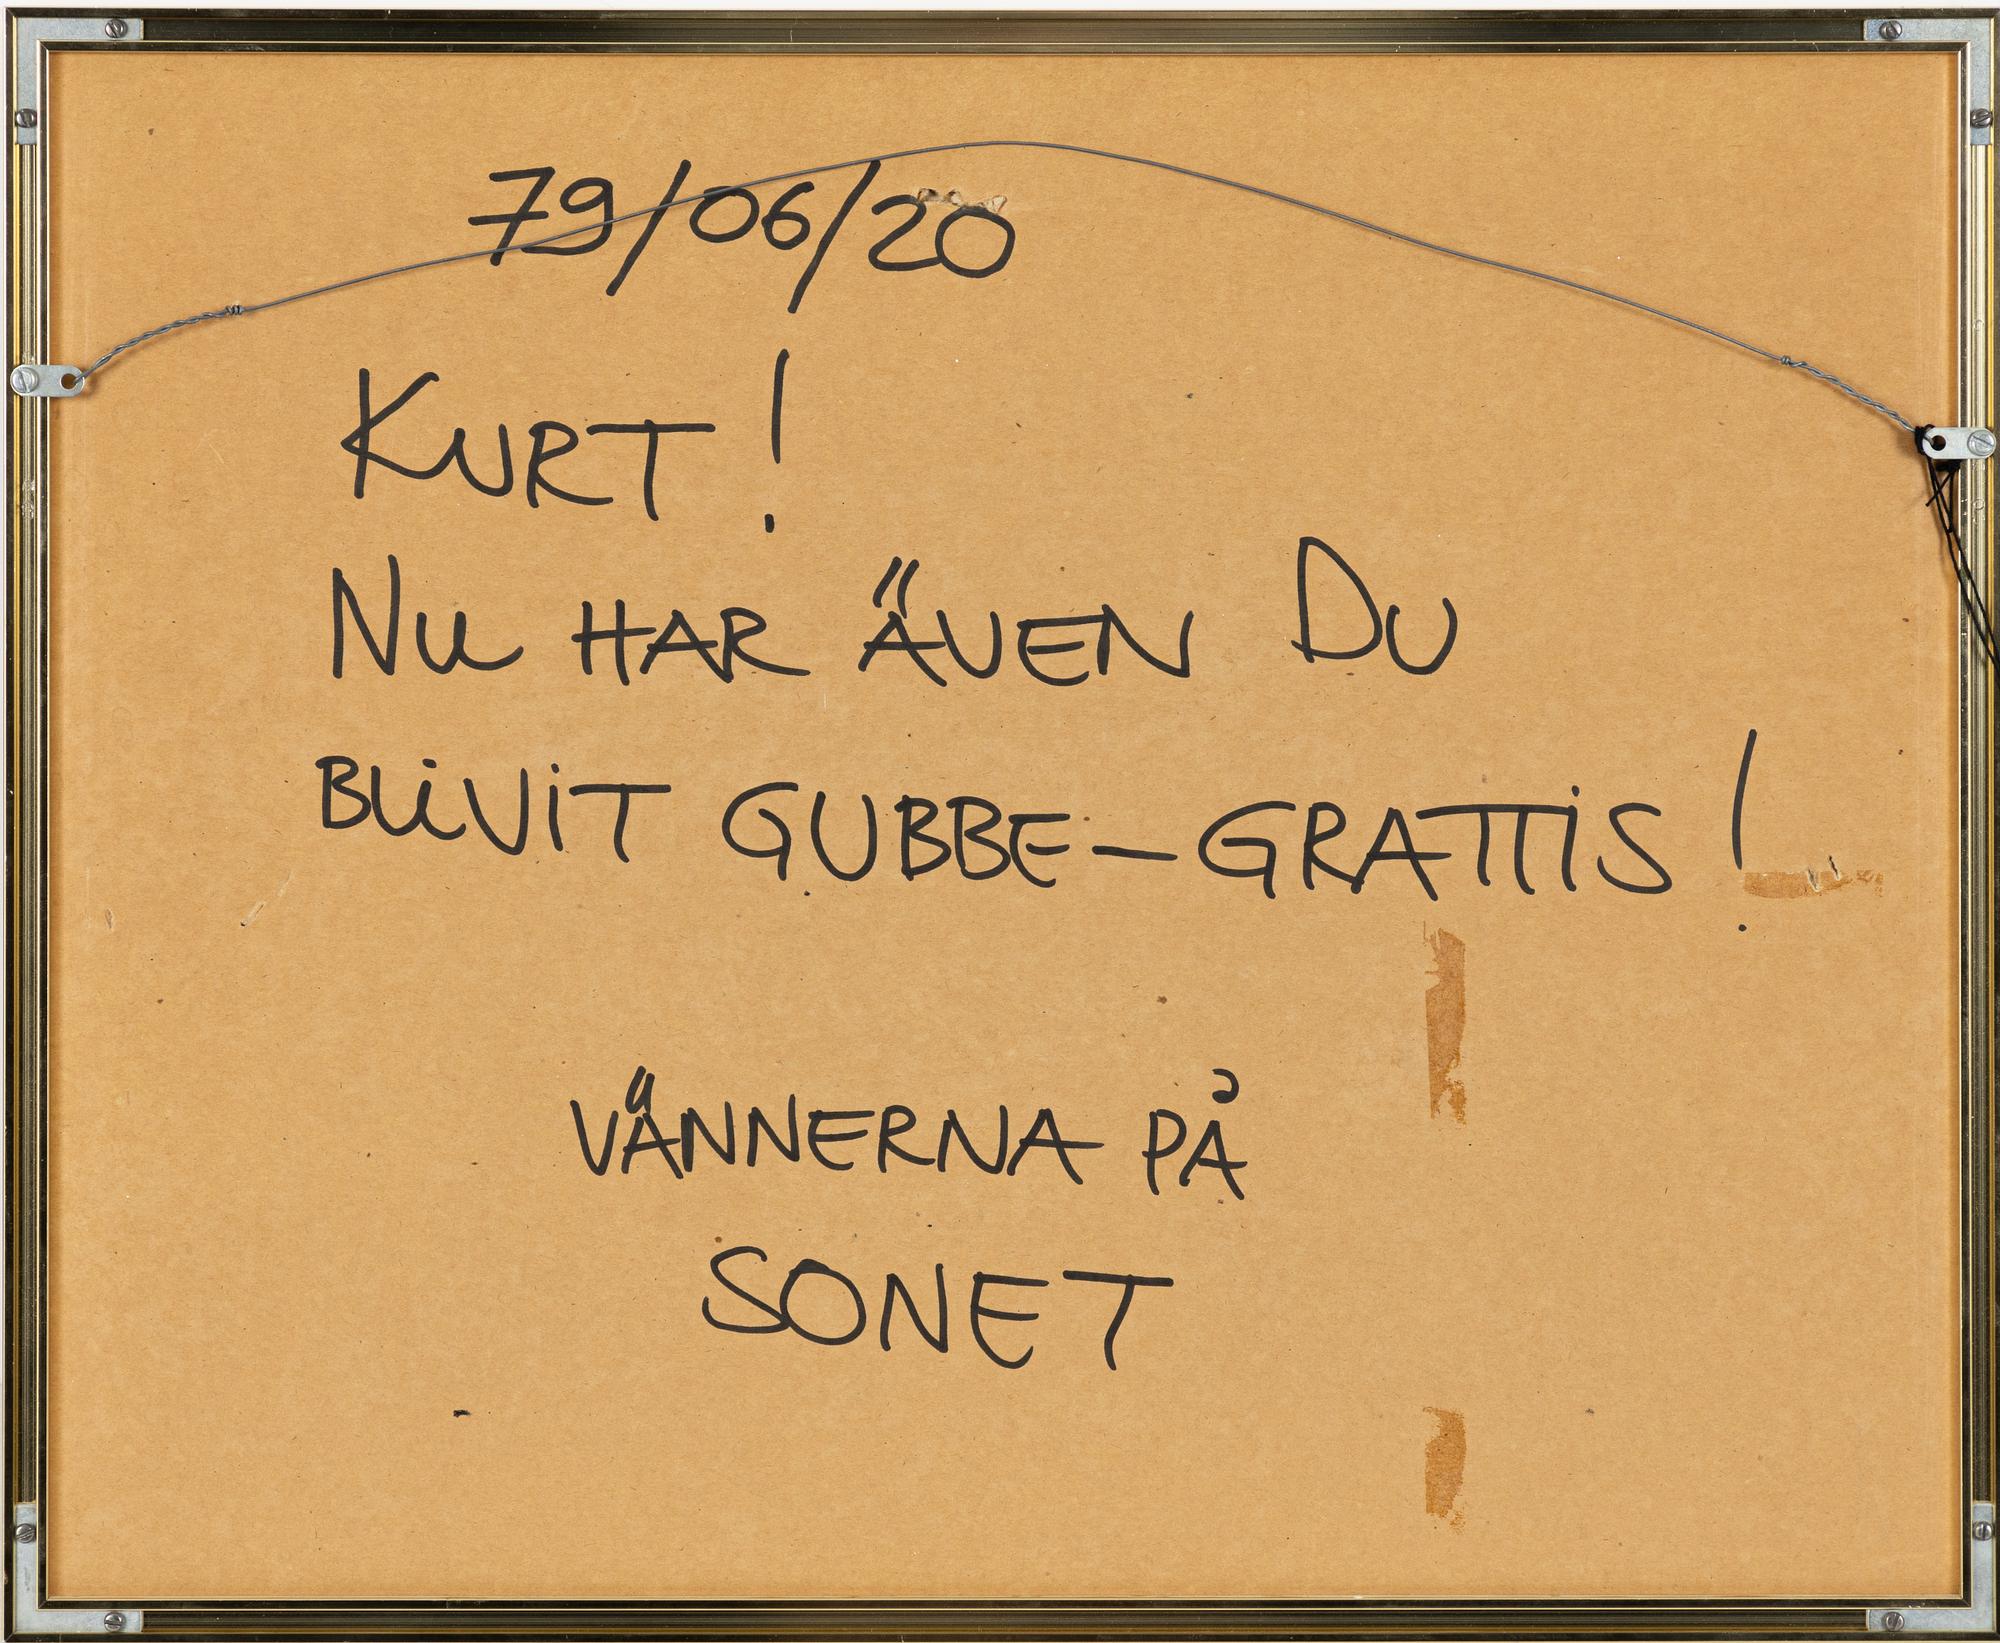 79/06/20
KURT!
NU HAR ÄVEN DU
BLIVIT GUBBE – GRATTIS!
VÄNNERNA PÅ
SONET